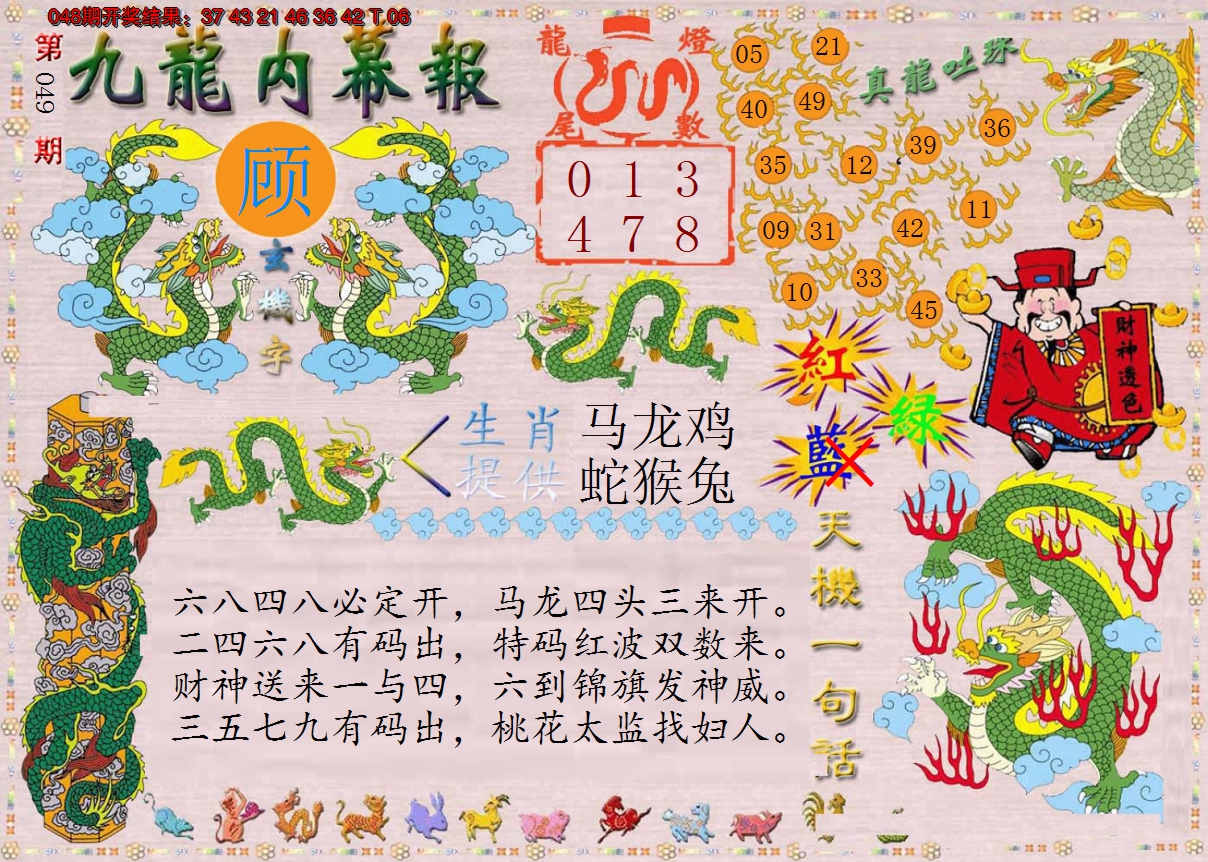 048期开奖结果：37 43 21 46 36 42 T 06
第049期
九龍内幕報
顾
玄機字
龍燈
尾數
0 1 3
4 7 8
真龍吐珠
05 21
40 49
35 12 39 36
09 31 42 11
10 33 45
財神透色
紅
绿
藍
生肖
提供
马龙鸡
蛇猴兔
天機一句话
六八四八必定开，马龙四头三来开。
二四六八有码出，特码红波双数来。
财神送来一与四，六到锦旗发神威。
三五七九有码出，桃花太监找妇人。